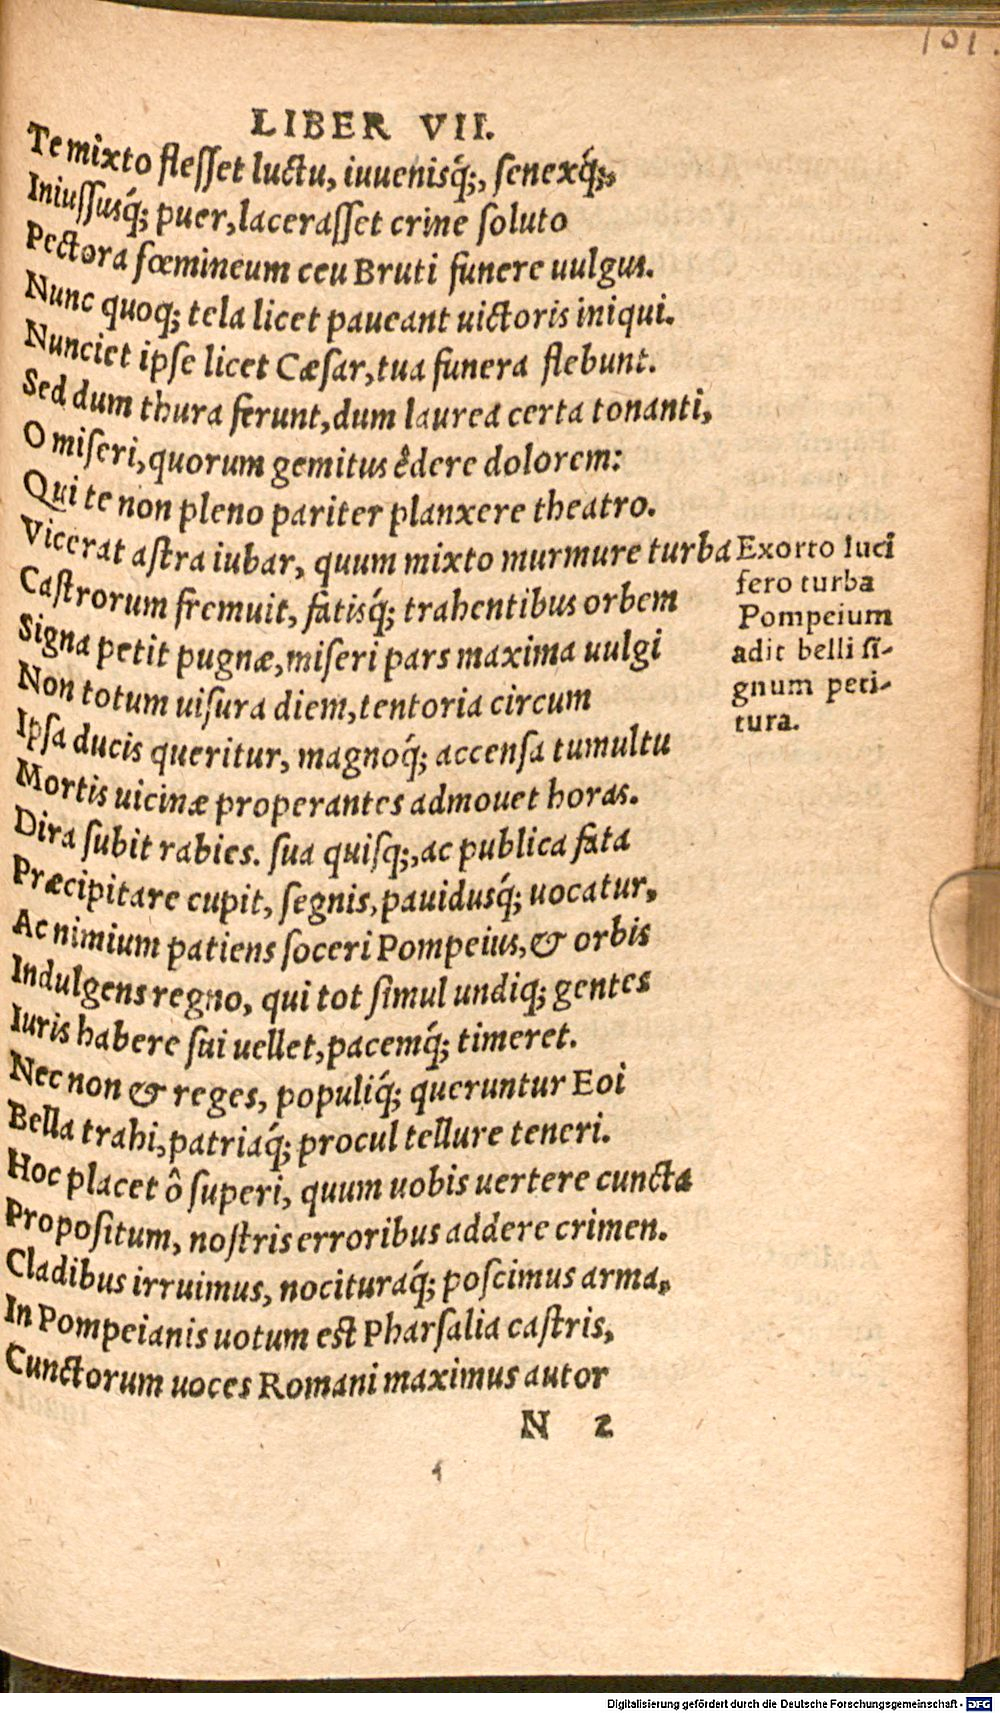 101.
LIBER VII.
Te mixto flesset luctu, iuuenisq́;, senexq́;,
Iniussusq́; puer, lacerasset crine soluto
Pectora fœmineum ceu Bruti funere uulgus.
Nunc quoq; tela licet paueant uictoris iniqui.
Nunciet ipse licet Cæsar, tua funera flebunt.
Sed dum thura ferunt, dum laurea certa tonanti,
O miseri, quorum gemitus êdere dolorem:
Qui te non pleno pariter planxere theatro.
Vicerat astra iubar, quum mixto murmure turba
Castrorum fremuit, fatisq́; trahentibus orbem
Signa petit pugnæ, miseri pars maxima uulgi
Non totum uisura diem, tentoria circum
Ipsa ducis queritur, magnoq́; accensa tumultu
Mortis uicinæ properantes admouet horas.
Dira subit rabies. sua quisq;, ac publica fata
Præcipitare cupit, segnis, pauidusq́; uocatur,
Ac nimium patiens soceri Pompeius, & orbis
Indulgens regno, qui tot simul undiq; gentes
Iuris habere sui uellet, pacemq́; timeret.
Nec non & reges, populiq́; queruntur Eoi
Bella trahi, patriaq́; procul tellure teneri.
Hoc placet ô superi, quum uobis uertere cuncta
Propositum, nostris erroribus addere crimen.
Cladibus irruimus, nocituraq́; poscimus arma,
In Pompeianis uotum est Pharsalia castris,
Cunctorum uoces Romani maximus autor
Exorto luci
fero turba
Pompeium
adit belli si-
gnum peti-
tura.
N 2
Digitalisierung gefördert durch die Deutsche Forschungsgemeinschaft - DFG